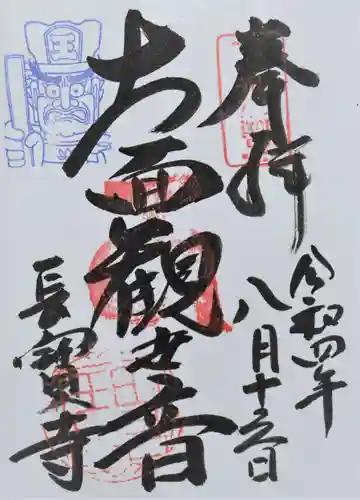 奉拝
令和四年
八月十五日
十一面観世音
長寳寺
王